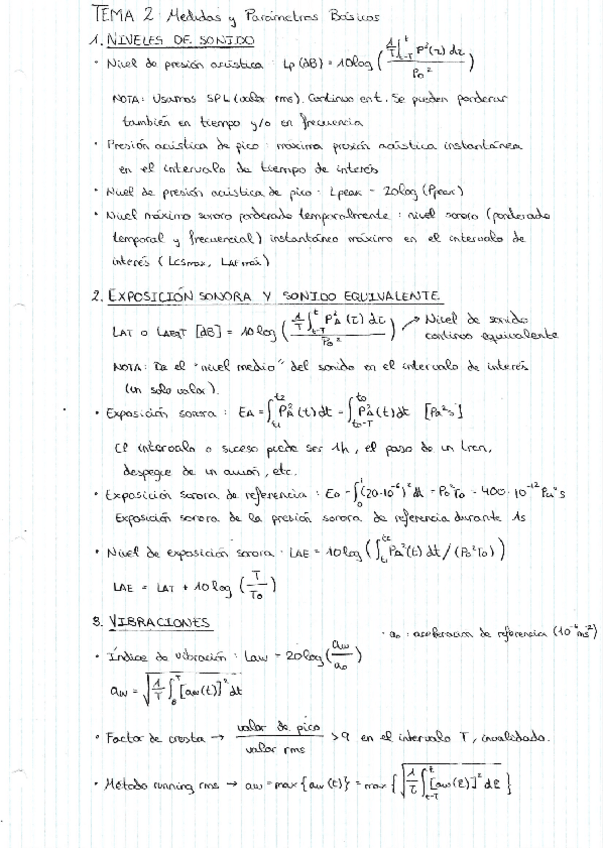 TEMA 2: Medidas y Parámetros Básicos
1. NIVELES DE SONIDO
• Nivel de presión acústica : Lp (dB) = 10log ( 1/T ∫_{t-T}^{t} P²(τ) dτ / P₀² )
NOTA: Usamos SPL (valor rms). Continuo en t. Se pueden ponderar
también en tiempo y/o en frecuencia
• Presión acústica de pico : máxima presión acústica instantánea
en el intervalo de tiempo de interés
• Nivel de presión acústica de pico · Lpeak = 20log (Ppeak)
• Nivel máximo sonoro ponderado temporalmente : nivel sonoro (ponderado
temporal y frecuencial) instantáneo máximo en el intervalo de
interés ( LCSmax, LAFmax)
2. EXPOSICIÓN SONORA Y SONIDO EQUIVALENTE
LAT o LAeqT [dB] = 10log ( 1/T ∫_{t-T}^{t} P_A² (τ) dτ / P₀² ) → Nivel de sonido
continuo equivalente
NOTA: Da el "nivel medio" del sonido en el intervalo de interés
(un solo valor).
• Exposición sonora : EA = ∫_{t1}^{t2} P_A² (t) dt = ∫_{t0-T}^{t0} P_A² (t) dt [Pa²s]
El intervalo o suceso puede ser 1h, el paso de un tren,
despegue de un avión, etc.
• Exposición sonora de referencia : E₀ = ∫_{0}^{1} (20·10⁻⁶)² dt = P₀²T₀ = 400·10⁻¹² Pa²s
Exposición sonora de la presión sonora de referencia durante 1s
• Nivel de exposición sonora · LAE = 10log ( ∫_{t1}^{t2} P_A² (t) dt / (P₀² T₀) )
LAE = LAT + 10log ( T / T₀ )
3. VIBRACIONES
• a₀ : aceleración de referencia (10⁻⁶ ms⁻²)
• Índice de vibración : Law = 20log ( aw / a₀ )
aw = √( 1/T ∫_{0}^{T} [aw(t)]² dt )
• Factor de cresta → valor de pico / valor rms > 9 en el intervalo T, invalidado.
• Método running rms → aw = max { aw (t)} = max { √( 1/τ ∫_{t-T}^{t} [aw(ξ)]² dξ ) }